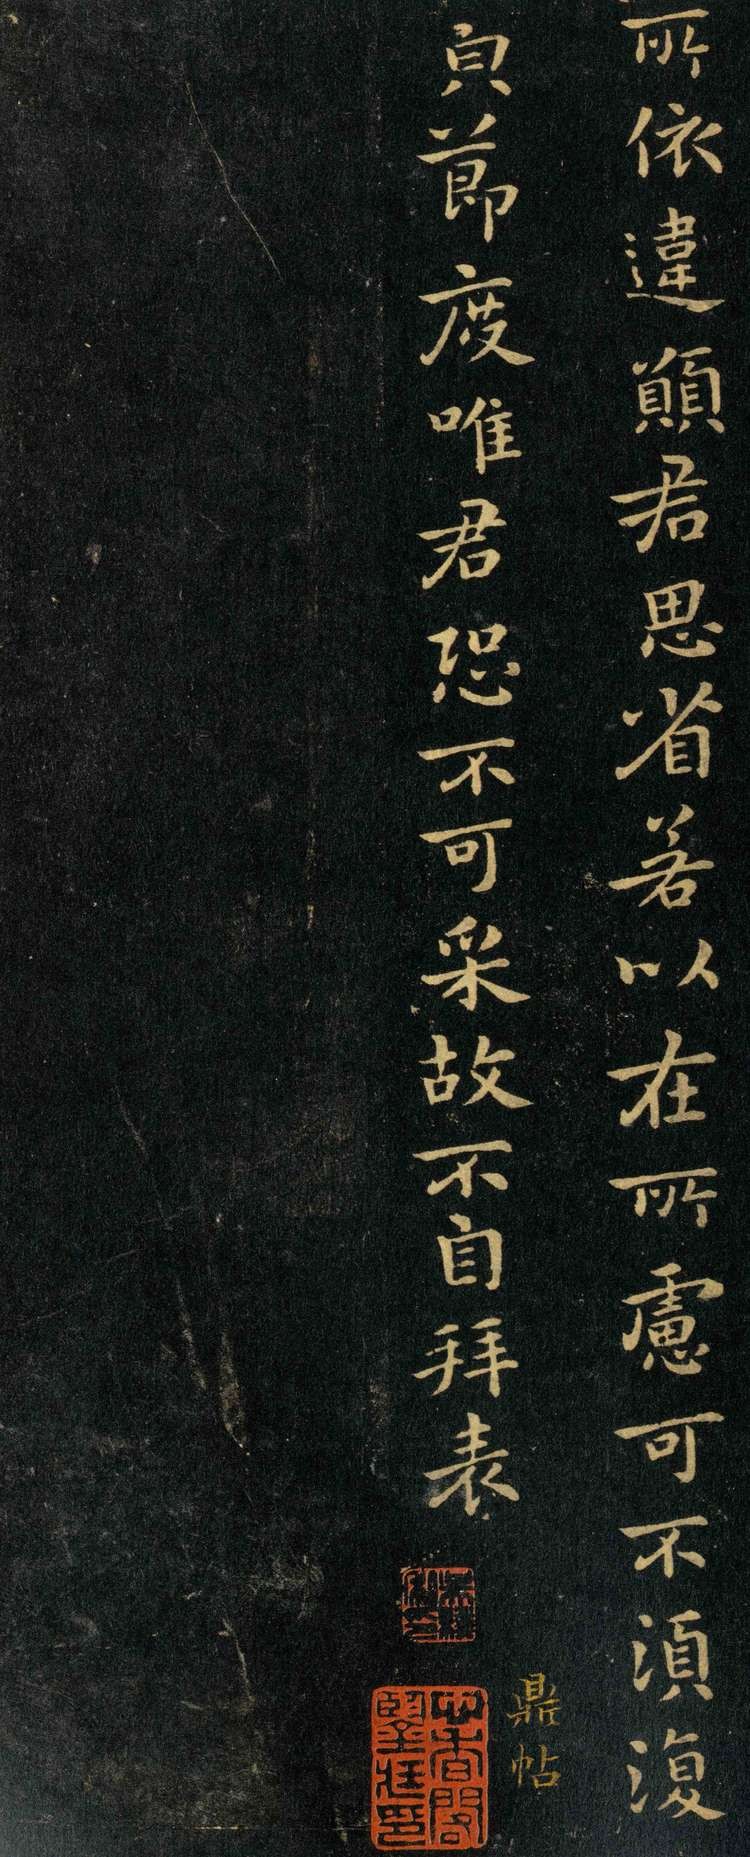 所依違願君思省若以在所慮可不須復
貟莭度唯君恐不可采故不自拜表
鼎帖